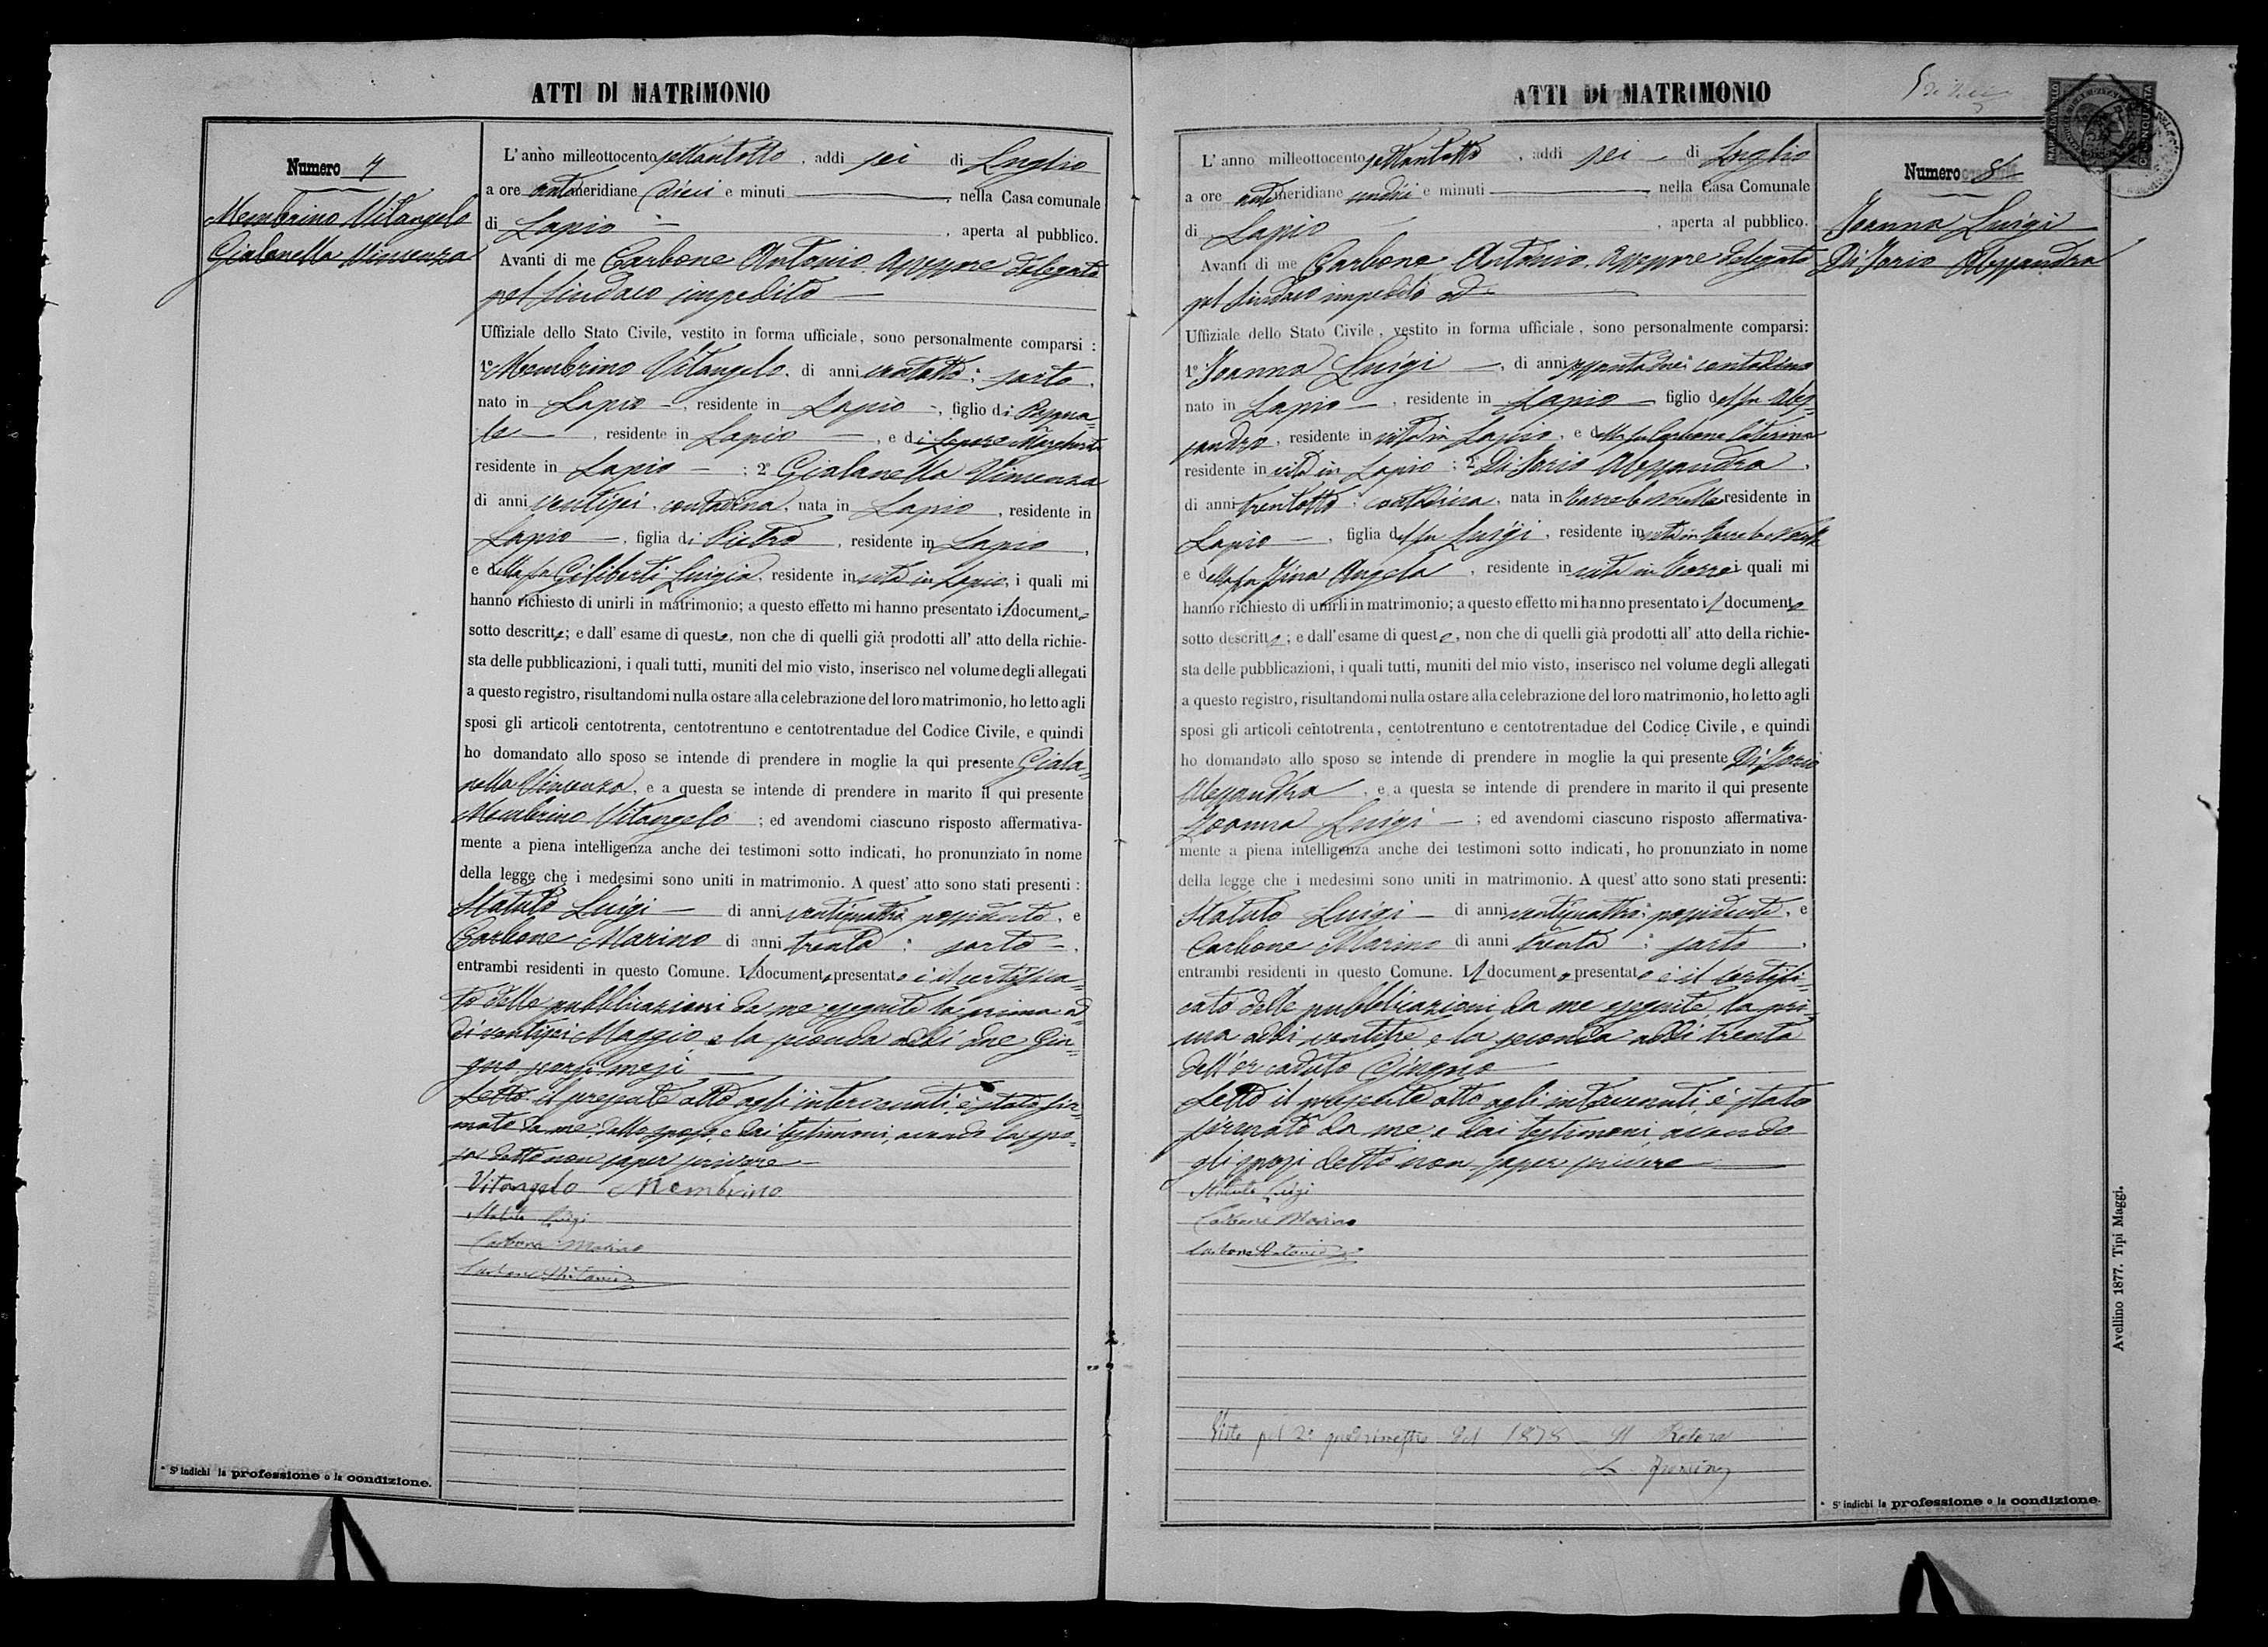 ATTI DI MATRIMONIO
Numero 7
Membrino Vitangelo
Gialanella Vincenza
L'anno milleottocento settantotto, addi sei di Luglio
a ore antimeridiane dieci e minuti , nella Casa comunale
di Lapio , aperta al pubblico.
Avanti di me Carbone Antonio Assessore delegato
pel Sindaco impedito
Uffiziale dello Stato Civile, vestito in forma ufficiale, sono personalmente comparsi :
1º Membrino Vitangelo, di anni ventotto: sarto,
nato in Lapio, residente in Lapio, figlio di
residente in Lapio, e di Lepore Margherita
residente in Lapio ; 2º Gialanella Vincenza
di anni ventisei, contadina, nata in Lapio, residente in
Lapio, figlia di Pietro, residente in Lapio,
e della fu Ciliberti Luigia, residente in vita in Lapio, i quali mi
hanno richiesto di unirli in matrimonio; a questo effetto mi hanno presentato il documento
sotto descritto; e dall' esame di questo, non che di quelli già prodotti all' atto della richie-
sta delle pubblicazioni, i quali tutti, muniti del mio visto, inserisco nel volume degli allegati
a questo registro, risultandomi nulla ostare alla celebrazione del loro matrimonio, ho letto agli
sposi gli articoli centotrenta, centotrentuno e centotrentadue del Codice Civile, e quindi
ho domandato allo sposo se intende di prendere in moglie la qui presente Giala-
nella Vincenza, e a questa se intende di prendere in marito il qui presente
Membrino Vitangelo ; ed avendomi ciascuno risposto affermativa-
mente a piena intelligenza anche dei testimoni sotto indicati, ho pronunziato in nome
della legge che i medesimi sono uniti in matrimonio. A quest' atto sono stati presenti :
Statuto Luigi di anni ventiquattro: possidente, e
Carbone Marino di anni trenta : sarto,
entrambi residenti in questo Comune. Il documento presentato è il certifica-
to delle pubblicazioni da me eseguite la prima ad-
di ventisei Maggio e la seconda addi due Giu-
gno scorsi mesi
Letto il presente atto agli intervenuti è stato fir-
mato da me, dallo sposo, e dai testimoni, avendo la spo-
sa detto non saper scrivere
Vitangelo Membrino
Statuto Luigi
Carbone Marino
Carbone Antonio
* S' indichi la professione o la condizione.
ATTI DI MATRIMONIO
Numero 8
Joanna Luigi
Di Jorio Alessandra
L' anno milleottocento settantotto, addi sei di Luglio
a ore antimeridiane undici e minuti , nella Casa Comunale
di Lapio , aperta al pubblico.
Avanti di me Carbone Antonio, Assessore delegato
pel Sindaco impedito ad
Uffiziale dello Stato Civile, vestito in forma ufficiale, sono personalmente comparsi:
1º Joanna Luigi, di anni contadino
nato in Lapio, residente in Lapio figlio del fu Ales-
sandro, residente in vita in Lapio, e della fu Carbone Caterina
residente in vita in Lapio ; 2º Di Jorio Alessandra,
di anni trentotto: contadina, nata in Torre le Nocelle residente in
Lapio, figlia del fu Luigi, residente in vita in Torre le Nocelle
e della fu Angela, residente in vita in Torre i quali mi
hanno richiesto di unirli in matrimonio; a questo effetto mi hanno presentato il documento
sotto descritto; e dall' esame di questo, non che di quelli già prodotti all' atto della richie-
sta delle pubblicazioni, i quali tutti, muniti del mio visto, inserisco nel volume degli allegati
a questo registro, risultandomi nulla ostare alla celebrazione del loro matrimonio, ho letto agli
sposi gli articoli centotrenta, centotrentuno e centotrentadue del Codice Civile, e quindi
ho domandato allo sposo se intende di prendere in moglie la qui presente Di Jorio
Alessandra, e a questa se intende di prendere in marito il qui presente
Joanna Luigi ; ed avendomi ciascuno risposto affermativa-
mente a piena intelligenza anche dei testimoni sotto indicati, ho pronunziato in nome
della legge che i medesimi sono uniti in matrimonio. A quest' atto sono stati presenti:
Statuto Luigi di anni ventiquattro: possidente, e
Carbone Marino di anni trenta : sarto,
entrambi residenti in questo Comune. Il documento presentato è il certifi-
cato delle pubblicazioni da me eseguite, la pri-
ma addi ventitre e la seconda addi trenta
dell'or caduto Giugno
Letto il presente atto agli intervenuti è stato
firmato da me e dai testimoni avendo
gli sposi detto non saper scrivere
Statuto Luigi
Carbone Marino
Carbone Antonio
Visto pel 2º quadrimestre del 1878 Il Pretore
* S' indichi la professione o la condizione.
Avellino 1877. Tipi Maggi.